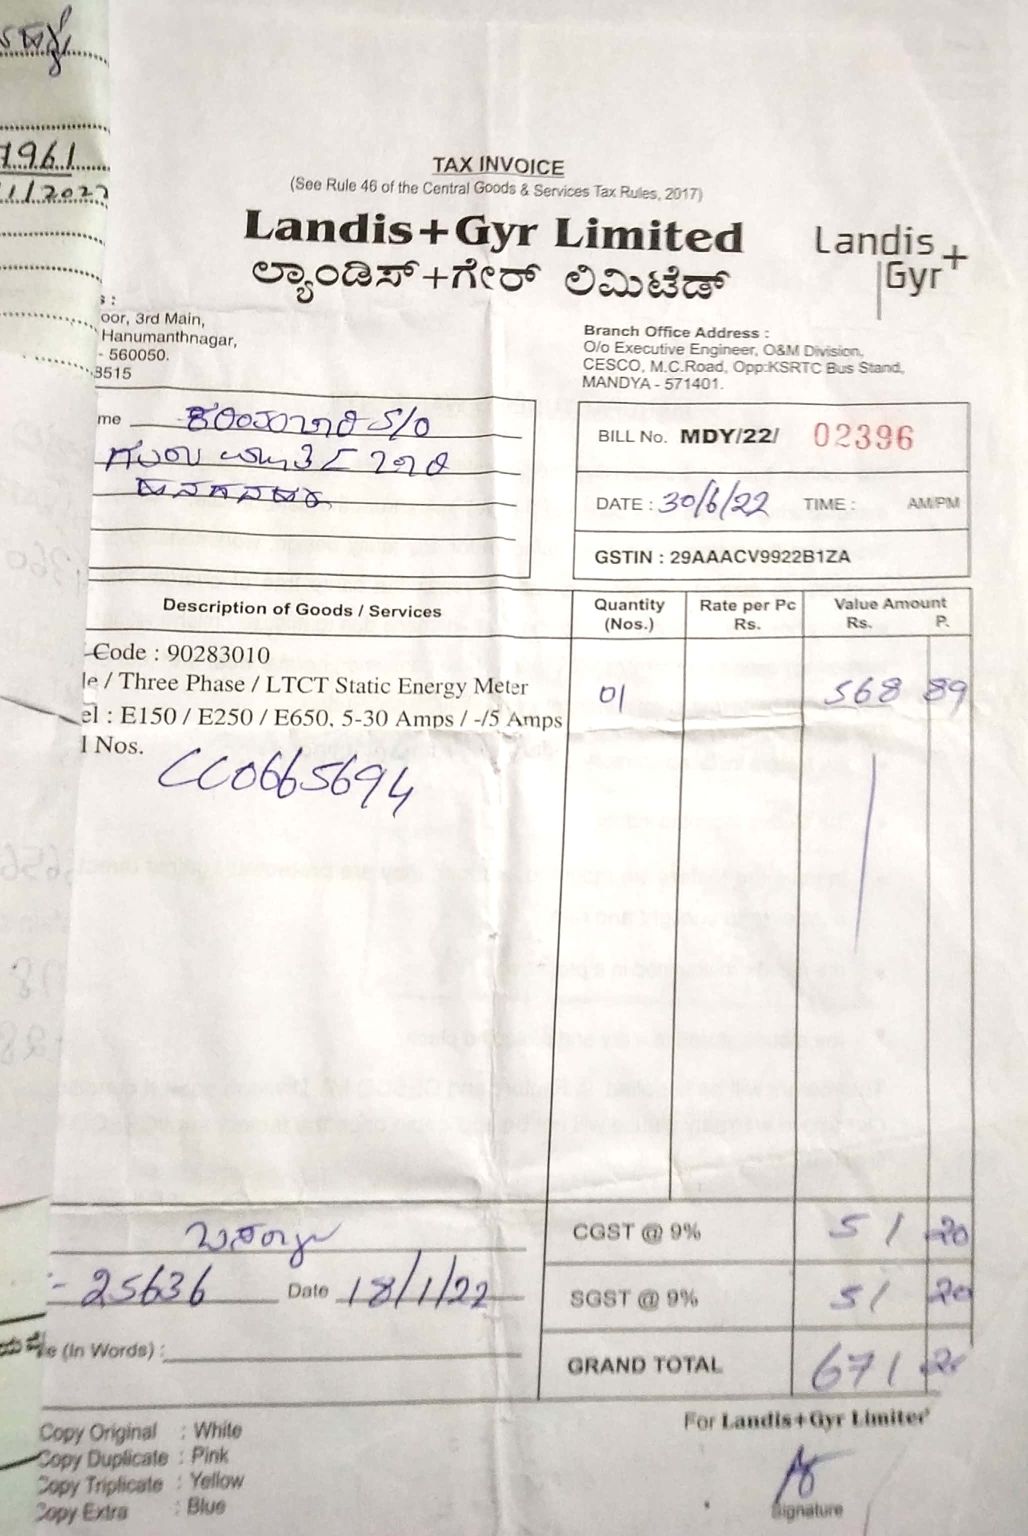 1961
1/2022
TAX INVOICE
(See Rule 46 of the Central Goods & Services Tax Rules, 2017)
Landis+Gyr Limited
ಲ್ಯಾಂಡಿಸ್+ಗೇರ್ ಲಿಮಿಟೆಡ್
Landis+
Gyr
s :
oor, 3rd Main,
Hanumanthnagar,
- 560050.
3515
Branch Office Address :
O/o Executive Engineer, O&M Division,
CESCO, M.C.Road, Opp:KSRTC Bus Stand,
MANDYA - 571401.
me S/O
BILL No. MDY/22/ 02396
DATE : 30/6/22 TIME : AM/PM
GSTIN : 29AAACV9922B1ZA
Description of Goods / Services Quantity (Nos.) Rate per Pc Rs. Value Amount Rs. P.
Code : 90283010
le / Three Phase / LTCT Static Energy Meter 01 568 89
el : E150 / E250 / E650, 5-30 Amps / -/5 Amps
l Nos.
CC0665694
CGST @ 9% 51 20
:- 25636 Date 18/1/22
SGST @ 9% 51 20
e (In Words) :
GRAND TOTAL 671
Copy Original : White
Copy Duplicate : Pink
Copy Triplicate : Yellow
Copy Extra : Blue
For Landis+Gyr Limited
Signature